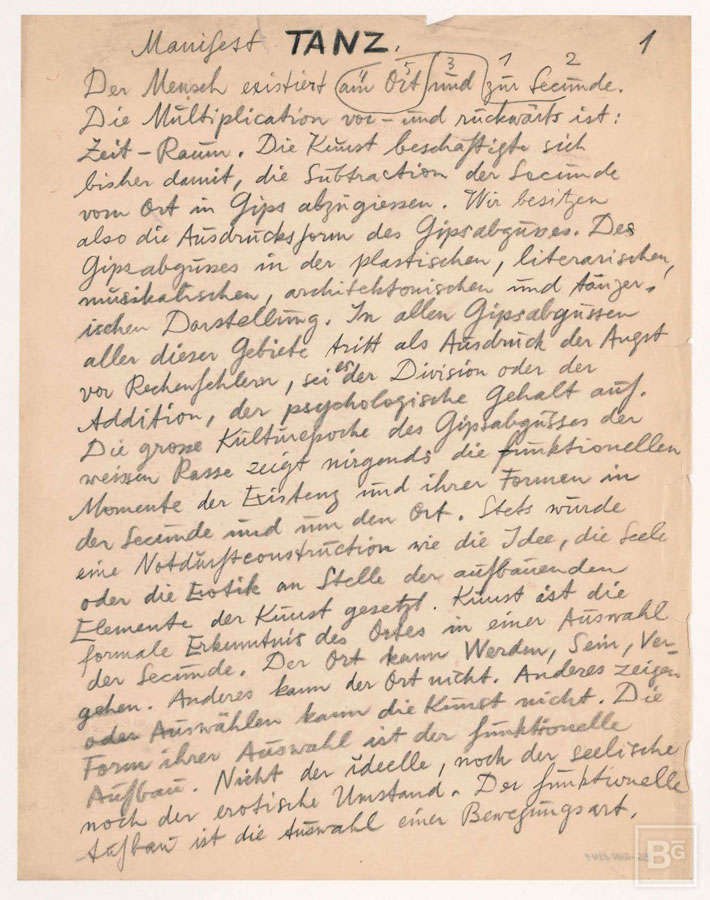 Manifest TANZ. 1
5 3 1 2
Der Mensch existiert am Ort und zur Secunde.
Die Multiplication vor- und rückwärts ist:
Zeit-Raum. Die Kunst beschäftigte sich
bisher damit, die Subtraction der Secunde
vom Ort in Gips abzugiessen. Wir besitzen
also die Ausdrucksform des Gipsabgusses. Des
Gipsabgusses in der plastischen, literarischen,
musikalischen, architektonischen und tänzer-
ischen Darstellung. In allen Gipsabgüssen
aller dieser Gebiete tritt als Ausdruck der Angst
vor Rechenfehlern, sei es der Division oder der
Addition, der psychologische Gehalt auf.
Die grosse Kulturepoche des Gipsabgusses der
weissen Rasse zeigt nirgends die funktionellen
Momente der Existenz und ihrer Formen in
der Secunde und um den Ort. Stets wurde
eine Notdurftconstruction wie die Idee, die Seele
oder die Erotik an Stelle der aufbauenden
Elemente der Kunst gesetzt. Kunst ist die
formale Erkenntnis des Ortes in einer Auswahl
der Secunde. Der Ort kann Werden, Sein, Ver-
gehen. Anderes kann der Ort nicht. Anderes zeigen
oder Auswählen kann die Kunst nicht. Die
Form ihrer Auswahl ist der funktionelle
Aufbau. Nicht der ideelle, noch der seelische
noch der erotische Umstand. Der funktionelle
Aufbau ist die Auswahl einer Bewegungsart.
BG